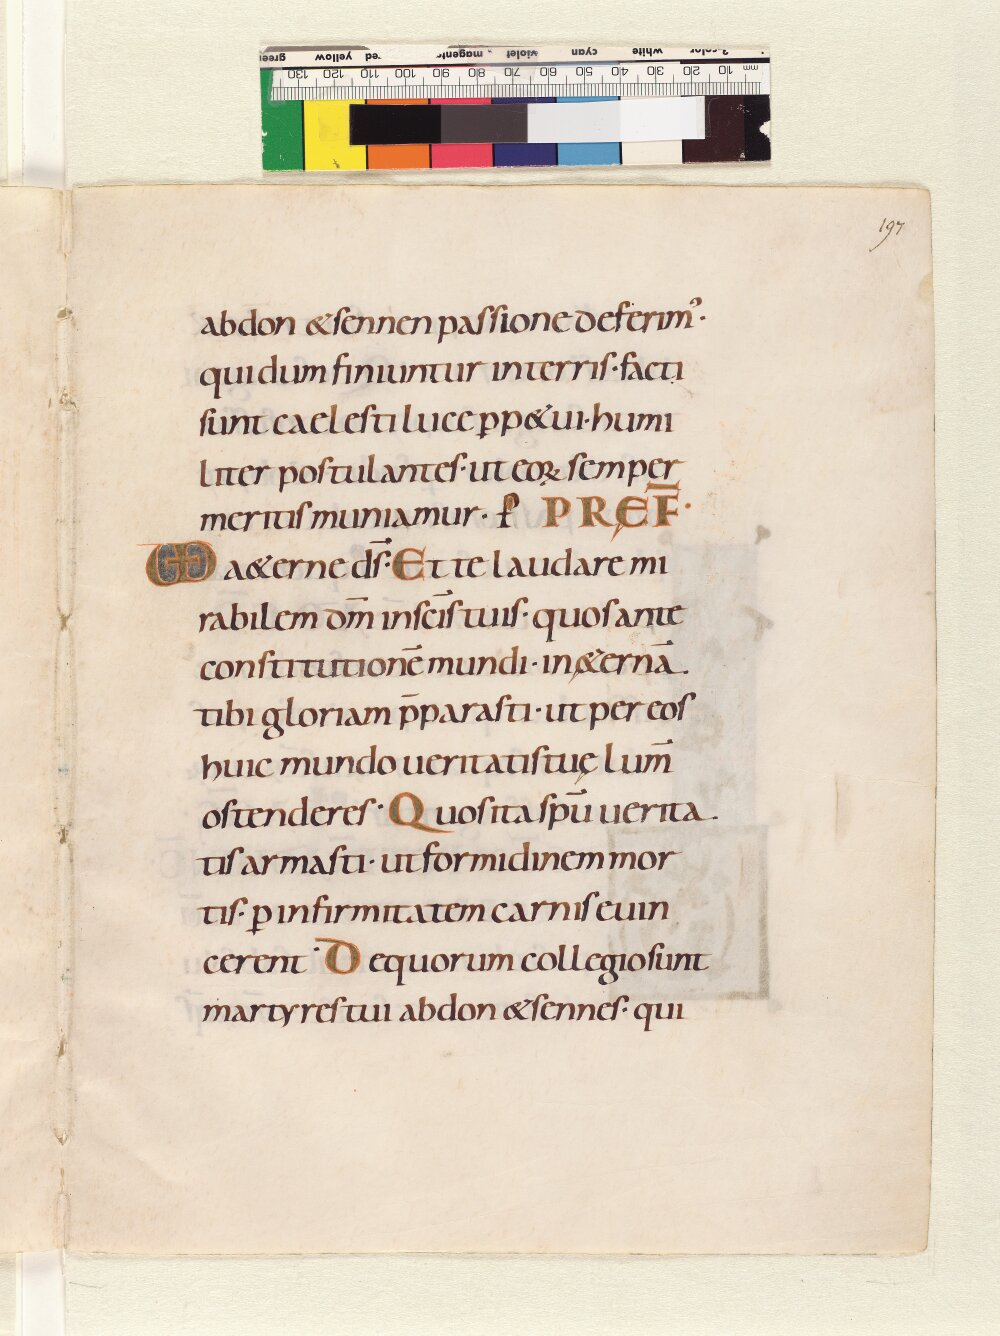 197
abdon &sennen passione deferim᾽·
qui dum finiuntur in terris·facti
sunt caelesti luce ꝑp&ui·humi
liter postulantes·ut eoꝝ semper
meritis muniamur· ꝑ PREF̄·
VD a&erne ds̄·Et te laudare mi
rabilem dm̄ in scīs tuis· quos ante
constitutionē mundi· in&ernā
tibi gloriam p̄parasti·ut per eos
huic mundo ueritatis tuę lum̄
ostenderes· Quos ita spū uerita
tis armasti· ut formidinem mor
tis· ꝑ infirmitatem carnis euin
cerent· De quorum collegio sunt
martyres tui abdon &sennes· qui